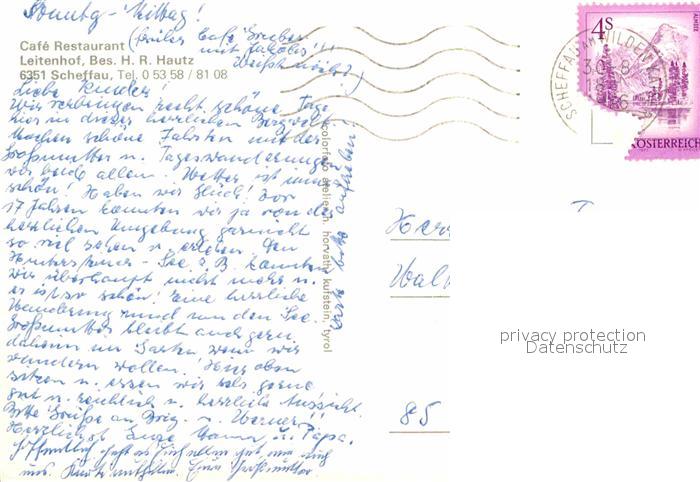 Sonntag-Mittag!
(früher Café Gruber
mit Jakobs!!!
Weißt noch?)
Café Restaurant
Leitenhof, Bes. H. R. Hautz
6351 Scheffau, Tel. 0 53 58 / 81 08
Liebe Kinder!
Wir verbringen recht schöne Tage
hier in dieser herrlichen Bergwelt.
Machen schöne Fahrten mit der
Großmutter u. Tageswanderungen
wir beid allein. Wetter ist immer
schön! Haben wir Glück! Vor
17 Jahren konnten wir ja von der
herrlichen Umgebung garnicht
so viel sehen u. erleben. Den
Hintersteiner-See z.B. kannten
wir überhaupt nicht mehr u.
er ist so schön! Eine herrliche
Wanderung rund um den See.
Großmutter bleibt auch gern
daheim im Garten wenn wir
wandern wollen! Hier oben
sitzen u. essen wir sehr gerne
gut u. reichlich u. herrliche Aussicht.
Bitte Grüße an Brig. u. Werner!
Herzlichst Eure Mama u. Papa.
Hoffentlich geht es Euch allen gut wie auch
uns. Eure Großmutter.
Karte bitte aufheben
colorfoto atelier h. horvath, kufstein, tyrol
4S
ALMSEE
REPUBLIK ÖSTERREICH
SCHEFFAU AM WILDEN KAISER
30. 8.
Herr
Wal
85
privacy protection
Datenschutz